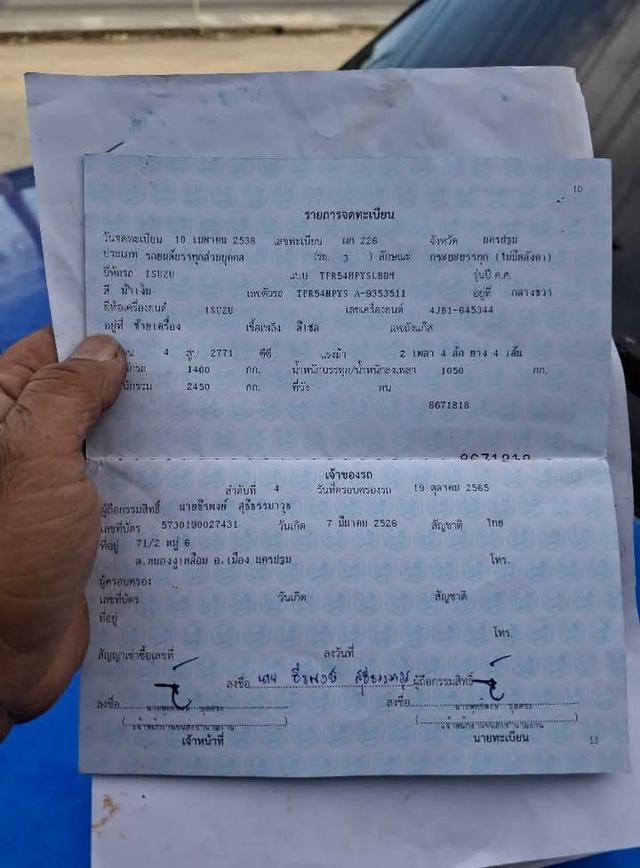 10
รายการจดทะเบียน
วันจดทะเบียน 10 เมษายน 2538 เลขทะเบียน ผก 226 จังหวัด นครปฐม
ประเภท รถยนต์บรรทุกส่วนบุคคล (รย. 3 ) ลักษณะ กระบะบรรทุก (ไม่มีหลังคา)
ยี่ห้อรถ ISUZU แบบ TFR54HPYSLBDM รุ่นปี ค.ศ.
สี น้ำเงิน เลขตัวรถ TFR54HPYS A-9353511 อยู่ที่ กลางขวา
ยี่ห้อเครื่องยนต์ ISUZU เลขเครื่องยนต์ 4JB1-645344
อยู่ที่ ซ้ายเครื่อง เชื้อเพลิง ดีเซล เลขถังแก๊ส
4 สูบ 2771 ซีซี แรงม้า 2 เพลา 4 ล้อ ยาง 4 เส้น
1400 กก. น้ำหนักบรรทุก/น้ำหนักลงเพลา 1050 กก.
2450 กก. ที่นั่ง คน
8671818
8671818
เจ้าของรถ
ลำดับที่ 4 วันที่ครอบครองรถ 19 ตุลาคม 2565
ผู้ถือกรรมสิทธิ์ นายธีรพงษ์ สุธีธรรมาวุธ
เลขที่บัตร 5730190027431 วันเกิด 7 มีนาคม 2526 สัญชาติ ไทย
ที่อยู่ 71/2 หมู่ 6
ต.หนองงูเหลือม อ.เมือง นครปฐม โทร.
ผู้ครอบครอง
เลขที่บัตร วันเกิด สัญชาติ
ที่อยู่
โทร.
สัญญาเช่าซื้อเลขที่ ลงวันที่
ลงชื่อ นาย ธีรพงษ์ สุธีธรรมาวุธ ผู้ถือกรรมสิทธิ์
ลงชื่อ ลงชื่อ
(เจ้าพนักงานขนส่งชำนาญงาน) (เจ้าพนักงานขนส่งชำนาญงาน)
เจ้าหน้าที่ นายทะเบียน
11